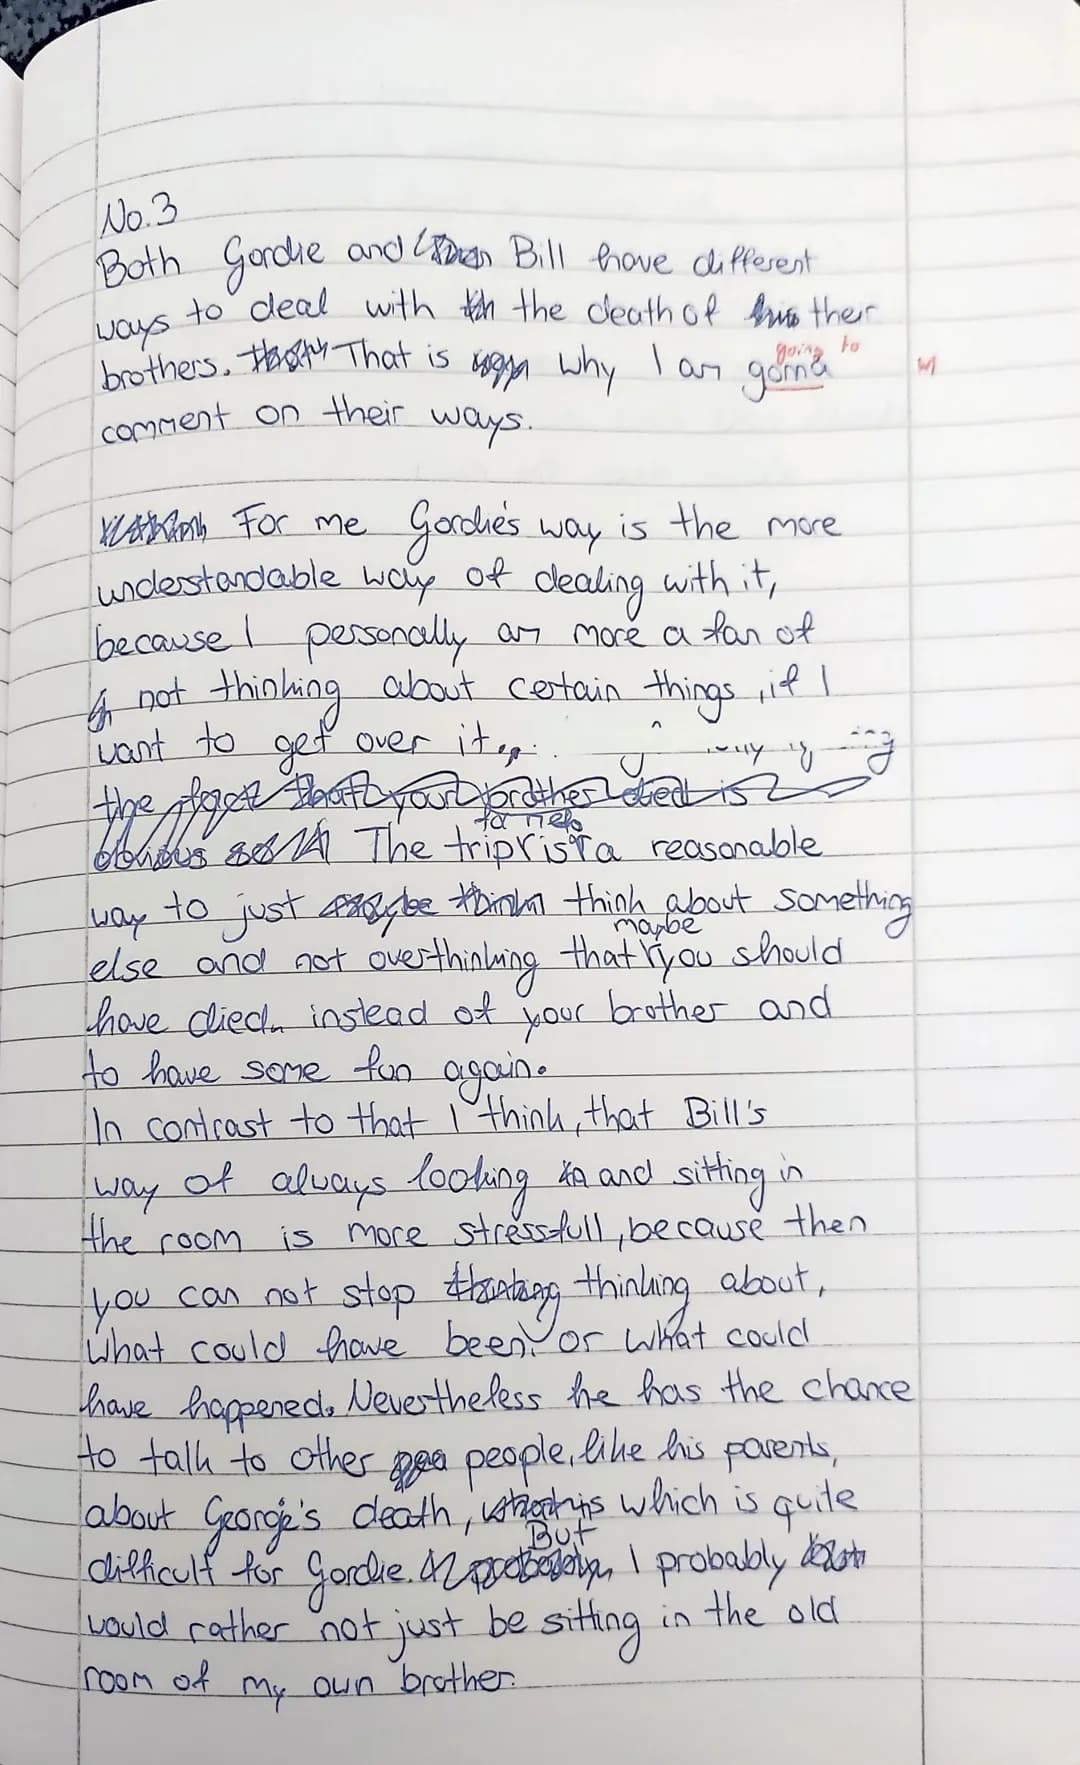 No.3
Both Gordie and Bill have different
ways to deal with the death of their
going to
brothers. That is why I am gonna
comment on their ways.
For me Gordie's way is the more
understandable way of dealing with it,
because I personally am more a fan of
not thinking about certain things, if I
want to get over it.
the fact that your brother died is
obvious
to help
The trip is a reasonable
way to just think about something
maybe
else and not overthinking that you should
have died instead of your brother and
to have some fun again.
In contrast to that I think, that Bill's
way of always looking and sitting in
the room is more stressfull, because then
you can not stop thinking about,
what could have been or what could
have happened. Nevertheless he has the chance
to talk to other people, like his parents,
about George's death, which is quite
But
difficult for Gordie. I probably
would rather not just be sitting in the old
room of my own brother.